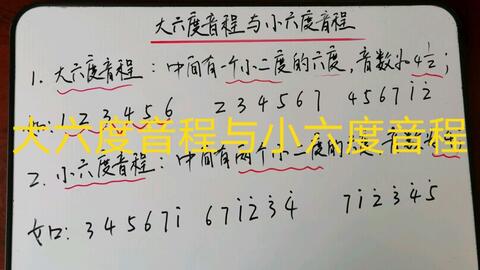 大六度音程与小六度音程
1. 大六度音程：中间有一个小二度的六度，音数为4½；
如：1 2 3 4 5 6  2 3 4 5 6 7  4 5 6 7 i̇ 2̇
大六度音程与小六度音程
2. 小六度音程：中间有两个小二度的
如：3 4 5 6 7 i̇  6 7 i̇ 2̇ 3̇ 4̇  7 i̇ 2̇ 3̇ 4̇ 5̇